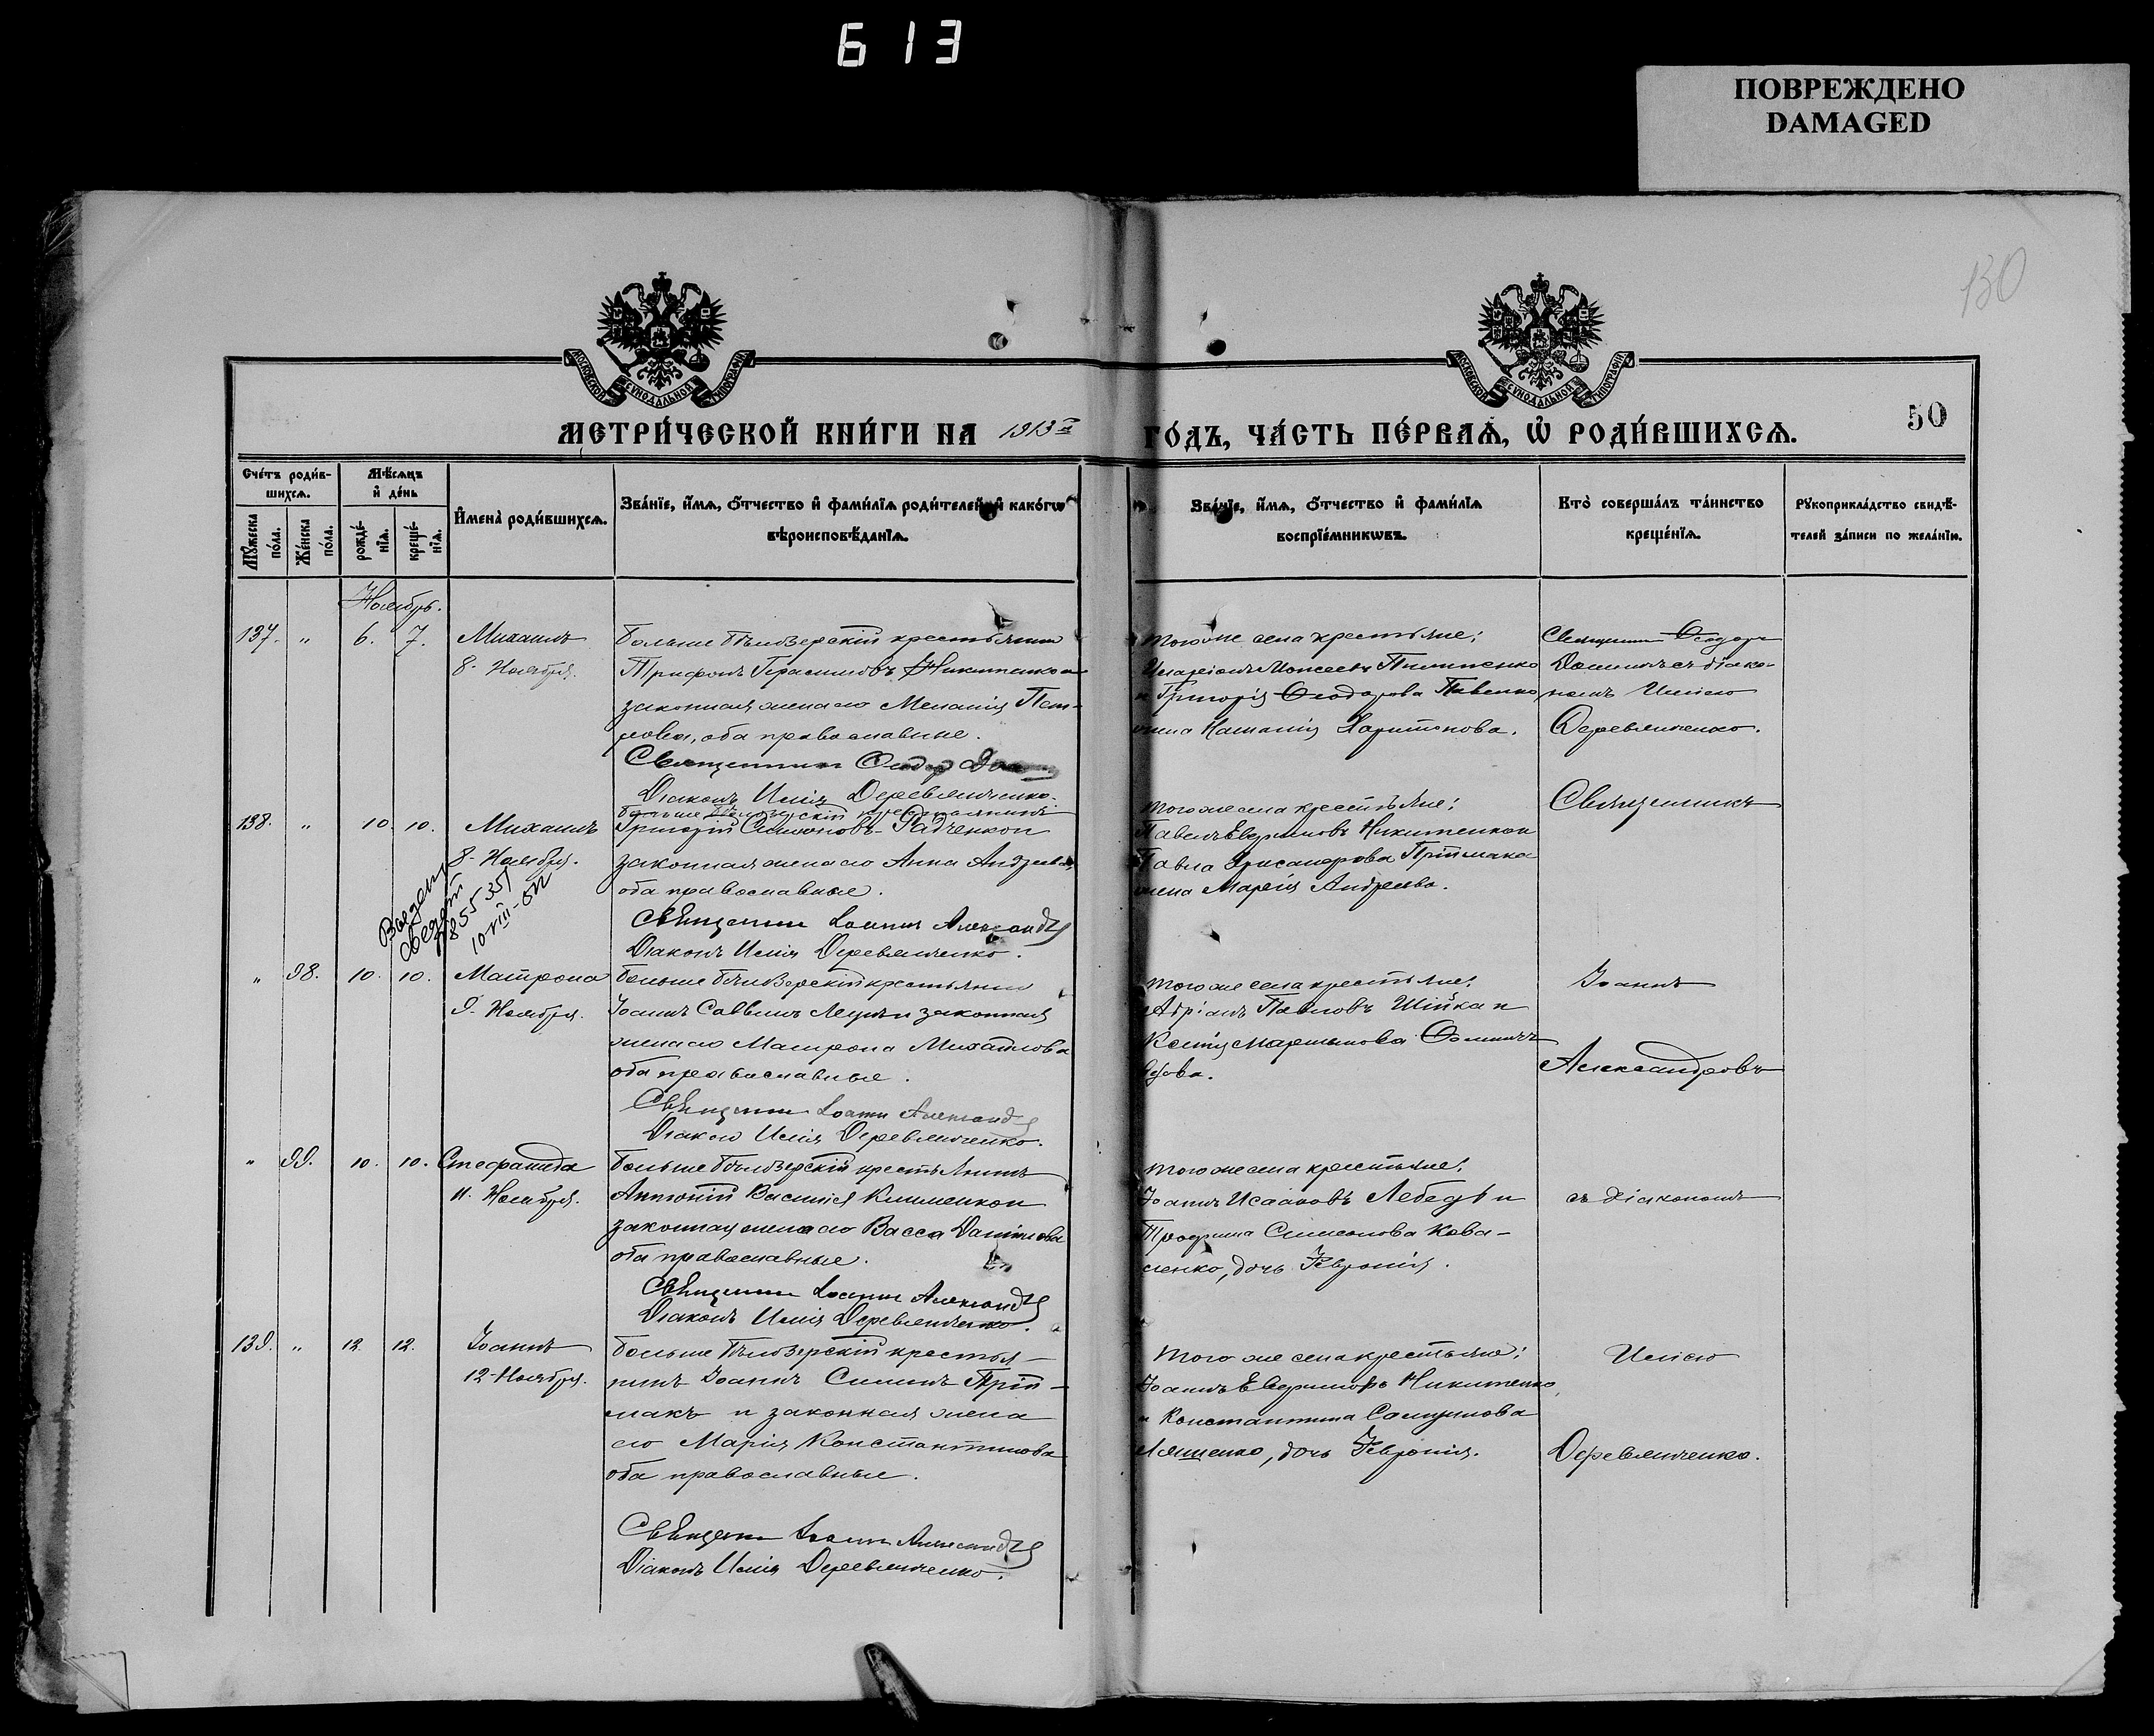 613
ПОВРЕЖДЕНО
DAMAGED
130
МОСКОВСКОЙ СѴНОДАЛЬНОЙ ТИПОГРАФІИ
МОСКОВСКОЙ СѴНОДАЛЬНОЙ ТИПОГРАФІИ
50
МЕТРИ́ЧЕСКОЙ КНИ́ГИ НА 1913 ГО́ДЪ, ЧА́СТЬ ПЕ́РВАЯ, Ѡ҆ РОДИ́ВШИХСЯ.
Сче́тъ роди́в-
шихся.
Мѣ́сяцъ
и҆ де́нь
Мꙋ́жеска по́ла.
Же́нска по́ла.
рожде́-нїя.
креще́-нїя.
И҆мена̀ роди́вшихся.
Зва́нїе, и҆́мя, ѻ҆́тчество и҆ фами́лїя роди́телей, и҆ како́гѡ
вѣроисповѣ́данїя.
Зва́нїе, и҆́мя, ѻ҆́тчество и҆ фами́лїя
воспрїе́мникѡвъ.
Кто̀ соверша́лъ та́инство
креще́нїя.
Рꙋкоприкла́дство свидѣ́-
телей за́писи по жела́нїю.
Ноябрь.
137. " 6. 7. Михаилъ
8. Ноября.
Больше Бѣлозерскій крестьянинъ
Трифонъ Герасимовъ Никитенко и
законная жена его Меланія Пет-
рова, оба православные.
Священникъ Ѳеодор
Діаконъ Илія Деревянченко.
того же села крестьяне:
Иларіонъ Моисеевъ Пилипенко
и Григорія Ѳеодорова Павенко,
жена Наталія Харитонова.
Священникъ Ѳеодоръ
съ діако-
номъ Иліею
Деревянченко.
138. " 10. 10. Михаилъ
8. Ноября.
Больше Бѣлозерскій крестьянинъ
Григорій Симоновъ Радченко и
законная жена его Анна Андреева,
оба православные.
Священникъ Іоаннъ Александр
Діаконъ Илія Деревянченко.
85535
10-VIII-
того же села крестьяне:
Павелъ Евфимовъ Никитенко и
Павла Приймака
жена Марія Андреева.
Священникъ
" 98. 10. 10. Матрона
9. Ноября.
Больше Бѣлозерскій крестьянинъ
Іоаннъ Саввинъ и законная
жена его Матрона Михайлова
оба православные.
Священникъ Іоаннъ Александр
Діаконъ Илія Деревянченко.
того же села крестьяне:
Адріанъ Павловъ Шійка и
Ксенія Мартынова
вдова.
Іоаннъ
Александровъ
" 99. 10. 10. Стефанида
11. Ноября.
Больше Бѣлозерскій крестьянинъ
Антоній Василіевъ Клименко и
законная жена его Васса Даніилова
оба православные.
Священникъ Іоаннъ Александр
Діаконъ Илія Деревянченко.
того же села крестьяне:
Іоаннъ Исааковъ Лебедь и
Трофима Симеонова Кова-
ленко, дочь Февронія.
съ діакономъ
139. " 12. 12. Іоаннъ
12 Ноября.
Больше Бѣлозерскій крестья-
нинъ Іоаннъ Силинъ Прій-
макъ и законная жена
его Марія Константинова
оба православные.
Священникъ Іоаннъ Александр
Діаконъ Илія Деревянченко.
того же села крестьяне:
Іоаннъ Евфимовъ Никитенко
и Константина Самуилова
Ляшенко, дочь Февронія.
Иліею
Деревянченко.